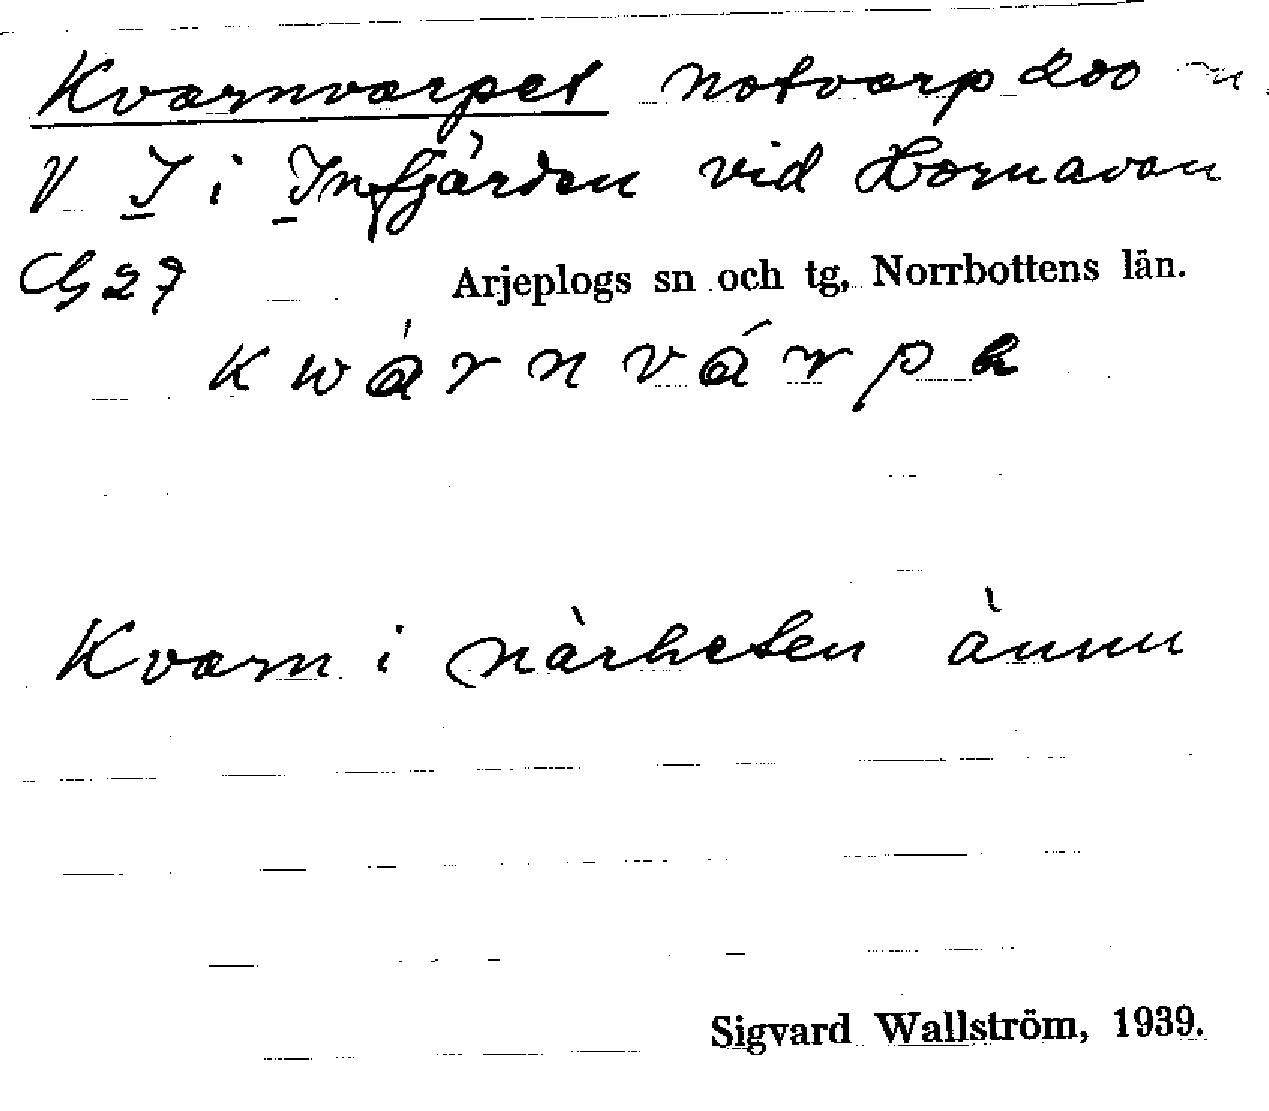 Kvarnvarpet notvarp 200 m
V I i Innfjärden vid Hornavan
G 27 Arjeplogs sn och tg, Norrbottens län.
kwárnvárpe
Kvarn i närheten ännu
Sigvard Wallström, 1939.